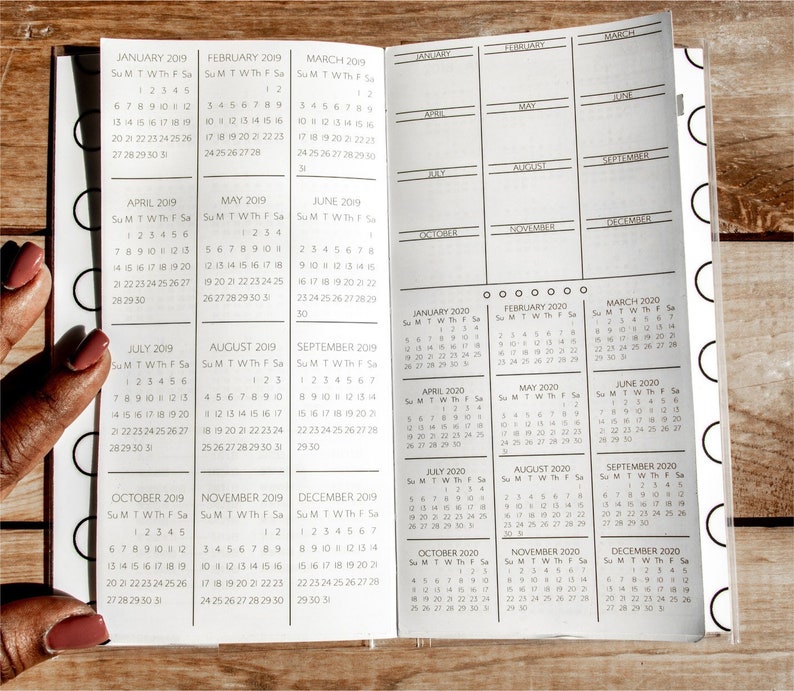 JANUARY 2019
Su M T W Th F Sa
1 2 3 4 5
6 7 8 9 10 11 12
13 14 15 16 17 18 19
20 21 22 23 24 25 26
27 28 29 30 31
FEBRUARY 2019
Su M T W Th F Sa
1 2
3 4 5 6 7 8 9
10 11 12 13 14 15 16
17 18 19 20 21 22 23
24 25 26 27 28
MARCH 2019
Su M T W Th F Sa
1 2
3 4 5 6 7 8 9
10 11 12 13 14 15 16
17 18 19 20 21 22 23
24 25 26 27 28 29 30
31
APRIL 2019
Su M T W Th F Sa
1 2 3 4 5 6
7 8 9 10 11 12 13
14 15 16 17 18 19 20
21 22 23 24 25 26 27
28 29 30
MAY 2019
Su M T W Th F Sa
1 2 3 4
5 6 7 8 9 10 11
12 13 14 15 16 17 18
19 20 21 22 23 24 25
26 27 28 29 30 31
JUNE 2019
Su M T W Th F Sa
1
2 3 4 5 6 7 8
9 10 11 12 13 14 15
16 17 18 19 20 21 22
23 24 25 26 27 28 29
30
JULY 2019
Su M T W Th F Sa
1 2 3 4 5 6
7 8 9 10 11 12 13
14 15 16 17 18 19 20
21 22 23 24 25 26 27
28 29 30 31
AUGUST 2019
Su M T W Th F Sa
1 2 3
4 5 6 7 8 9 10
11 12 13 14 15 16 17
18 19 20 21 22 23 24
25 26 27 28 29 30 31
SEPTEMBER 2019
Su M T W Th F Sa
1 2 3 4 5 6 7
8 9 10 11 12 13 14
15 16 17 18 19 20 21
22 23 24 25 26 27 28
29 30
OCTOBER 2019
Su M T W Th F Sa
1 2 3 4 5
6 7 8 9 10 11 12
13 14 15 16 17 18 19
20 21 22 23 24 25 26
27 28 29 30 31
NOVEMBER 2019
Su M T W Th F Sa
1 2
3 4 5 6 7 8 9
10 11 12 13 14 15 16
17 18 19 20 21 22 23
24 25 26 27 28 29 30
DECEMBER 2019
Su M T W Th F Sa
1 2 3 4 5 6 7
8 9 10 11 12 13 14
15 16 17 18 19 20 21
22 23 24 25 26 27 28
29 30 31
JANUARY
FEBRUARY
MARCH
APRIL
MAY
JUNE
JULY
AUGUST
SEPTEMBER
OCTOBER
NOVEMBER
DECEMBER
JANUARY 2020
Su M T W Th F Sa
1 2 3 4
5 6 7 8 9 10 11
12 13 14 15 16 17 18
19 20 21 22 23 24 25
26 27 28 29 30 31
FEBRUARY 2020
Su M T W Th F Sa
1
2 3 4 5 6 7 8
9 10 11 12 13 14 15
16 17 18 19 20 21 22
23 24 25 26 27 28 29
MARCH 2020
Su M T W Th F Sa
1 2 3 4 5 6 7
8 9 10 11 12 13 14
15 16 17 18 19 20 21
22 23 24 25 26 27 28
29 30 31
APRIL 2020
Su M T W Th F Sa
1 2 3 4
5 6 7 8 9 10 11
12 13 14 15 16 17 18
19 20 21 22 23 24 25
26 27 28 29 30
MAY 2020
Su M T W Th F Sa
1 2
3 4 5 6 7 8 9
10 11 12 13 14 15 16
17 18 19 20 21 22 23
24 25 26 27 28 29 30
31
JUNE 2020
Su M T W Th F Sa
1 2 3 4 5 6
7 8 9 10 11 12 13
14 15 16 17 18 19 20
21 22 23 24 25 26 27
28 29 30
JULY 2020
Su M T W Th F Sa
1 2 3 4
5 6 7 8 9 10 11
12 13 14 15 16 17 18
19 20 21 22 23 24 25
26 27 28 29 30 31
AUGUST 2020
Su M T W Th F Sa
1
2 3 4 5 6 7 8
9 10 11 12 13 14 15
16 17 18 19 20 21 22
23 24 25 26 27 28 29
30 31
SEPTEMBER 2020
Su M T W Th F Sa
1 2 3 4 5
6 7 8 9 10 11 12
13 14 15 16 17 18 19
20 21 22 23 24 25 26
27 28 29 30
OCTOBER 2020
Su M T W Th F Sa
1 2 3
4 5 6 7 8 9 10
11 12 13 14 15 16 17
18 19 20 21 22 23 24
25 26 27 28 29 30 31
NOVEMBER 2020
Su M T W Th F Sa
1 2 3 4 5 6 7
8 9 10 11 12 13 14
15 16 17 18 19 20 21
22 23 24 25 26 27 28
29 30
DECEMBER 2020
Su M T W Th F Sa
1 2 3 4 5
6 7 8 9 10 11 12
13 14 15 16 17 18 19
20 21 22 23 24 25 26
27 28 29 30 31